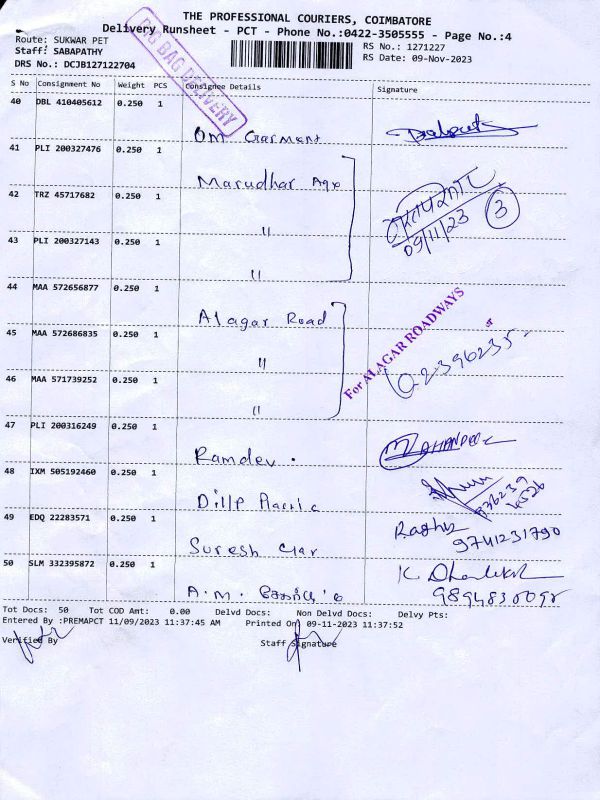 THE PROFESSIONAL COURIERS, COIMBATORE
Delivery Runsheet - PCT - Phone No.:0422-3505555 - Page No.:4
Route: SUKWAR PET
Staff: SABAPATHY
DRS No.: DCJB127122704
RS No.: 1271227
RS Date: 09-Nov-2023
BAG DELIVERY
S No Consignment No Weight PCS Consignee Details Signature
40 DBL 410405612 0.250 1
Om Garment
41 PLI 200327476 0.250 1
Marudhar Agx
42 TRZ 45717682 0.250 1
"
09/11/23 3
43 PLI 200327143 0.250 1
"
44 MAA 572656877 0.250 1
Alagar Road
For ALAGAR ROADWAYS
45 MAA 572686835 0.250 1
"
46 MAA 571739252 0.250 1
"
47 PLI 200316249 0.250 1
Ramdev.
48 IXM 505192460 0.250 1
49 EDQ 22283571 0.250 1
Suresh
Raghu
9741231790
50 SLM 332395872 0.250 1
A.M.
K.
Tot Docs: 50 Tot COD Amt: 0.00 Delvd Docs: Non Delvd Docs: Delvy Pts:
Entered By :PREMAPCT 11/09/2023 11:37:45 AM Printed On 09-11-2023 11:37:52
Verified By Staff Signature